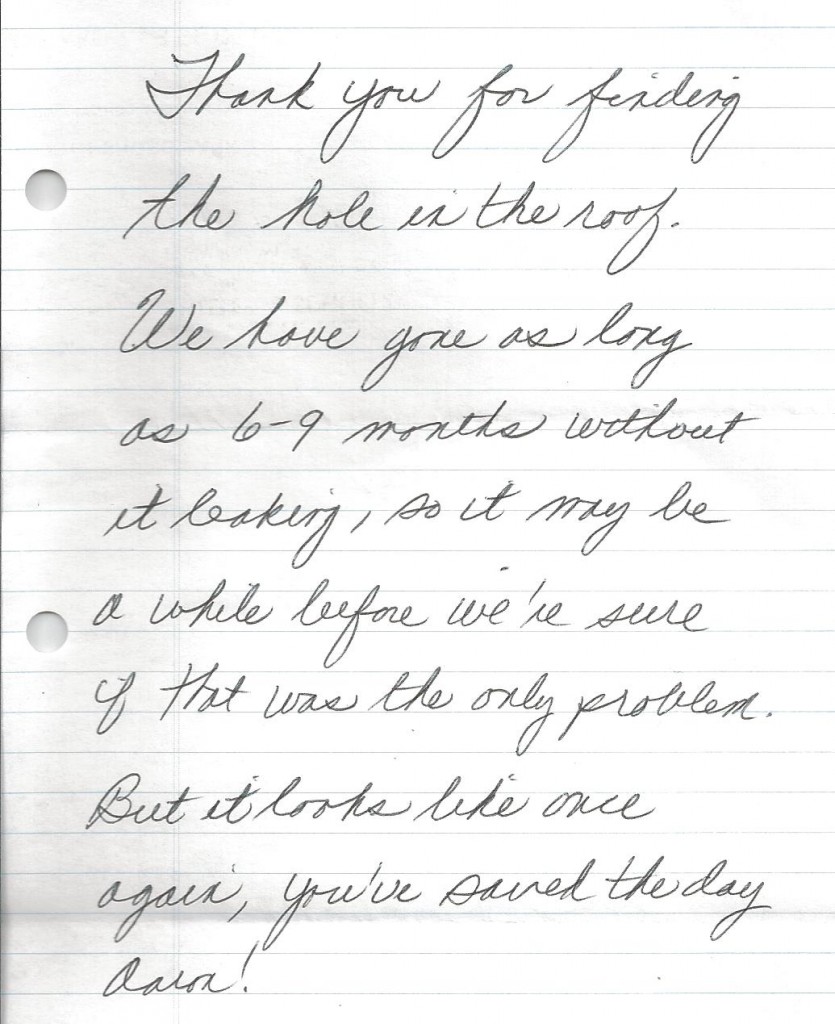 Thank you for finding
the hole in the roof.
We have gone as long
as 6-9 months without
it leaking, so it may be
a while before we're sure
if that was the only problem.
But it looks like once
again, you've saved the day
Aaron!